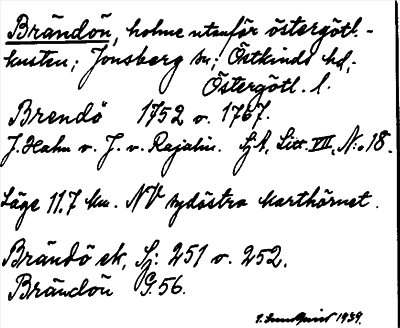 Brändön, holme utanför östergötl.-
kusten; Jonsberg sn; Östkinds hd,
Östergötl. l.
Brendö 1752 o. 1767.
J. Hahn o. J. v. Rajalin. SjA, Litt. VII, N:o 18.
Läge 11.7 km. NV sydöstra karthörnet.
Brändö ek, Sj: 251 o. 252.
Brändön G.56.
1939.